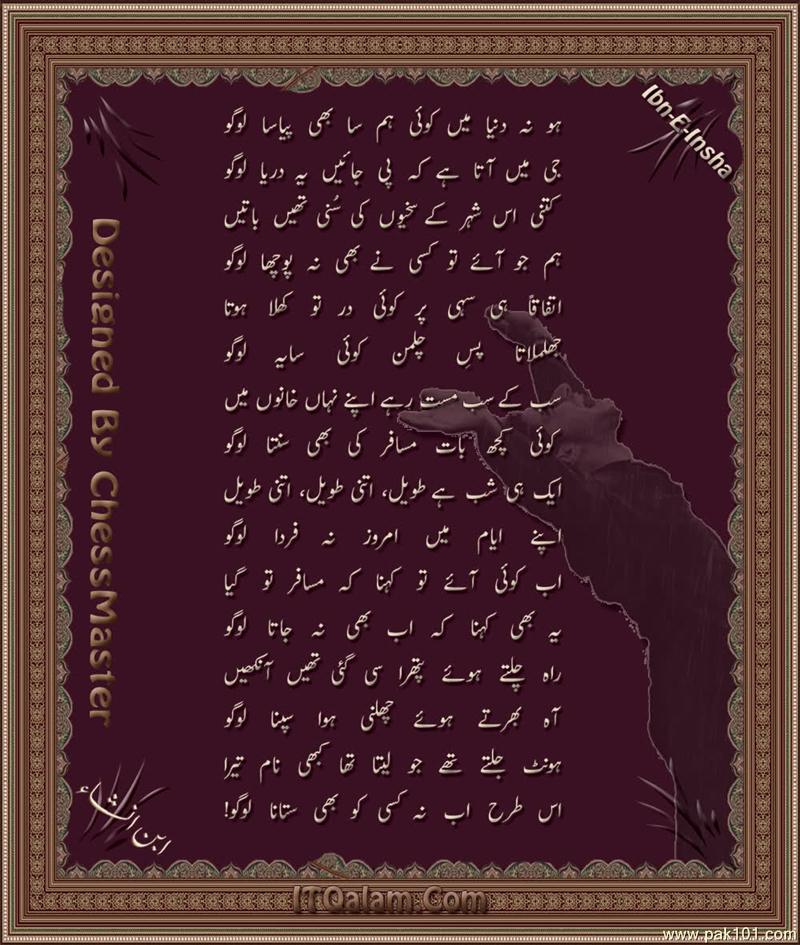 Ibn-E-Insha
ہو نہ دنیا میں کوئی ہم سا بھی پیاسا لوگو
جی میں آتا ہے کہ پی جائیں یہ دریا لوگو
کتنی اس شہر کے سخیوں کی سُنی تھیں باتیں
ہم جو آئے تو کسی نے بھی نہ پوچھا لوگو
اتفاقاً ہی سہی پر کوئی در تو کھلا ہوتا
جھلملاتا پسِ چلمن کوئی سایہ لوگو
سب کے سب مست رہے اپنے نہاں خانوں میں
کوئی کچھ بات مسافر کی بھی سنتا لوگو
ایک ہی شب ہے طویل، اتنی طویل، اتنی طویل
اپنے ایام میں امروز نہ فردا لوگو
اب کوئی آئے تو کہنا کہ مسافر تو گیا
یہ بھی کہنا کہ اب بھی نہ جاتا لوگو
راہ چلتے ہوئے پتھرا سی گئی تھیں آنکھیں
آہ بھرتے ہوئے چھلنی ہوا سپنا لوگو
ہونٹ جلتے تھے جو لیتا تھا کبھی نام تیرا
اس طرح اب نہ کسی کو بھی ستانا لوگو!
Designed By ChessMaster
ابن انشاء
ITQalam.Com
www.pak101.com